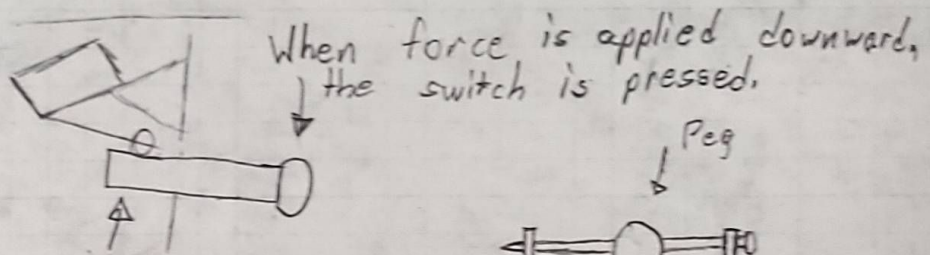 When force is applied downward,
the switch is pressed.
Peg